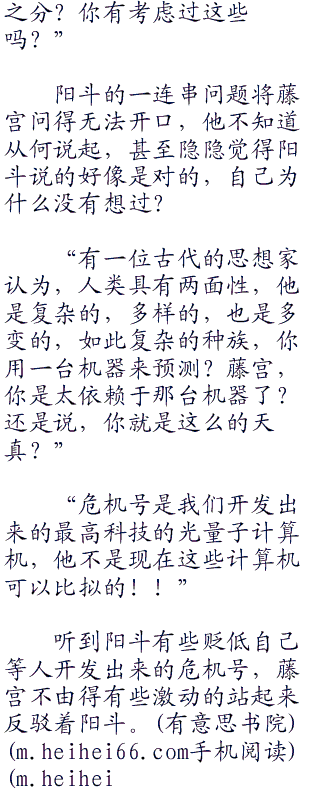 之分？你有考虑过这些
吗？”
阳斗的一连串问题将藤
宫问得无法开口，他不知道
从何说起，甚至隐隐觉得阳
斗说的好像是对的，自己为
什么没有想过？
“有一位古代的思想家
认为，人类具有两面性，他
是复杂的，多样的，也是多
变的，如此复杂的种族，你
用一台机器来预测？藤宫，
你是太依赖于那台机器了？
还是说，你就是这么的天
真？”
“危机号是我们开发出
来的最高科技的光量子计算
机，他不是现在这些计算机
可以比拟的！！”
听到阳斗有些贬低自己
等人开发出来的危机号，藤
宫不由得有些激动的站起来
反驳着阳斗。(有意思书院)
(m.heihei66.com手机阅读)
(m.heihei